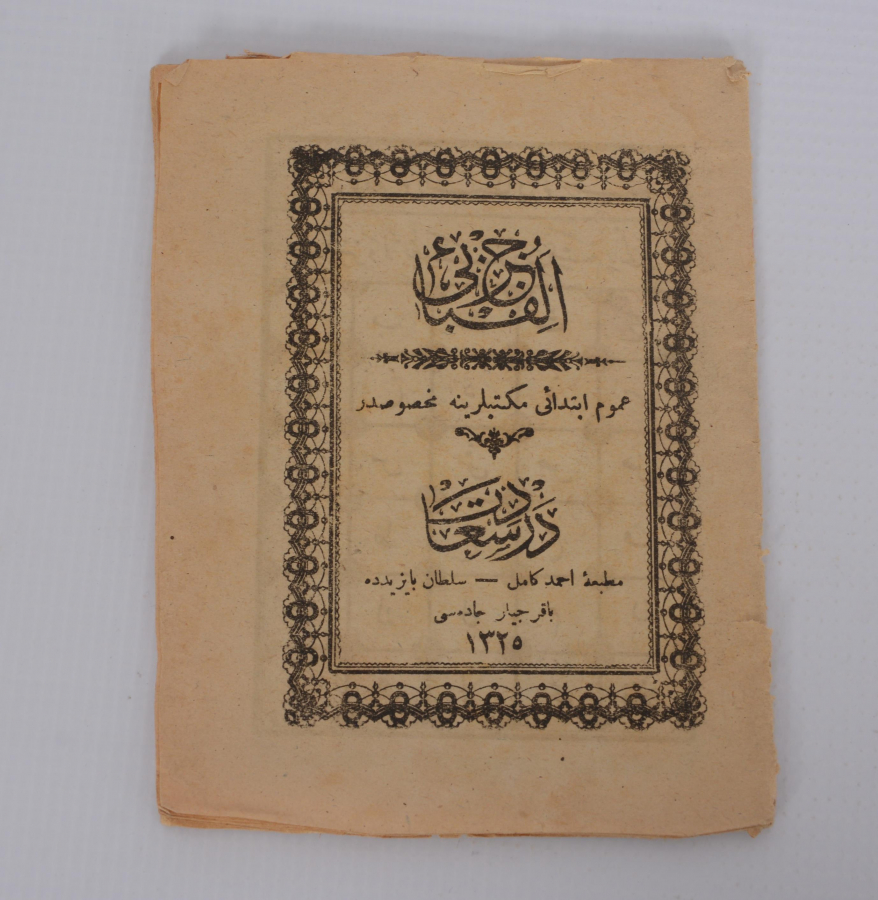 الفبائی جزئی
عموم ابتدائی مكتبلرینه مخصوصدر
درسعادت
مطبعهٔ احمد كامل — سلطان بایزیدده
باقرجیلر جاده‌سی
١٣٢٥